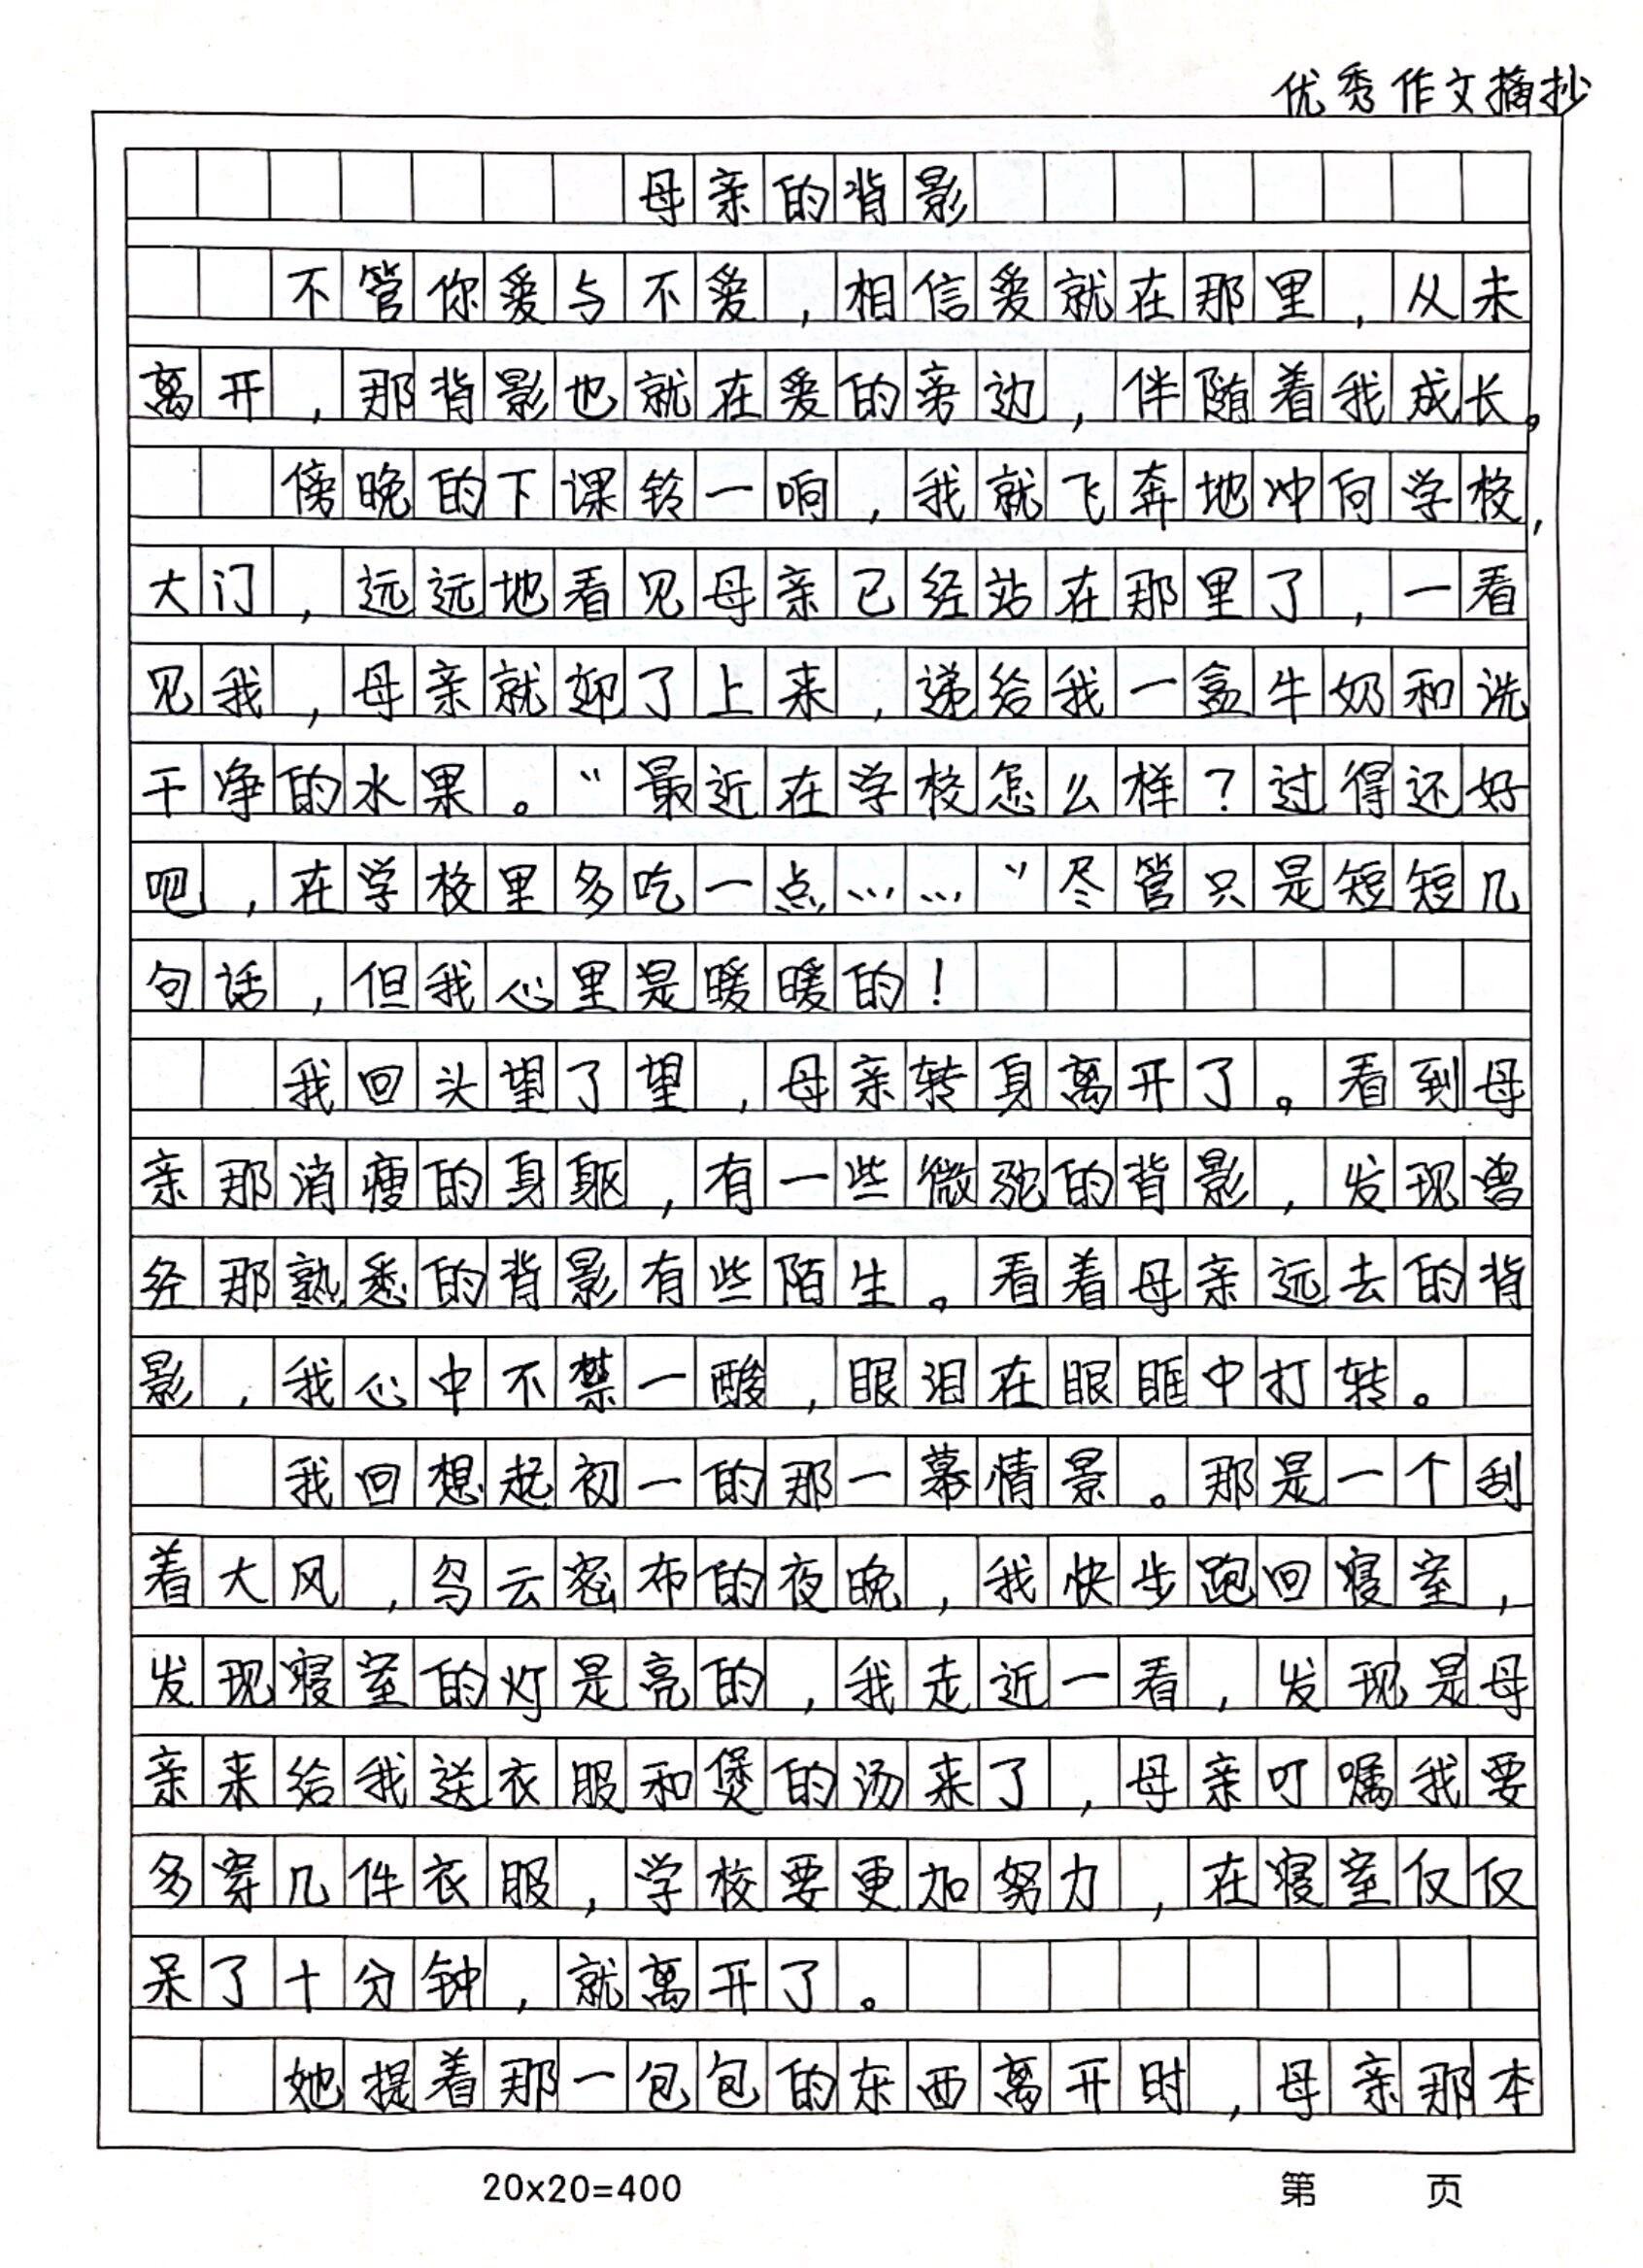 优秀作文摘抄
母亲的背影
不管你爱与不爱,相信爱就在那里,从未
离开,那背影也就在爱的旁边,伴随着我成长。
傍晚的下课铃一响,我就飞奔地冲向学校,
大门,远远地看见母亲已经站在那里了,一看
见我,母亲就迎了上来,递给我一盒牛奶和洗
干净的水果。“最近在学校怎么样?过得还好
吧,在学校里多吃一点……”尽管只是短短几
句话,但我心里是暖暖的!
我回头望了望,母亲转身离开了。看到母
亲那消瘦的身躯,有一些微驼的背影,发现曾
经那熟悉的背影有些陌生。看着母亲远去的背
影,我心中不禁一酸,眼泪在眼眶中打转。
我回想起初一的那一幕情景。那是一个刮
着大风,乌云密布的夜晚,我快步跑回寝室,
发现寝室的灯是亮的,我走近一看,发现是母
亲来给我送衣服和煲的汤来了,母亲叮嘱我要
多穿几件衣服,学校要更加努力,在寝室仅仅
呆了十分钟,就离开了。
她提着那一包包的东西离开时,母亲那本
20×20=400
第 页